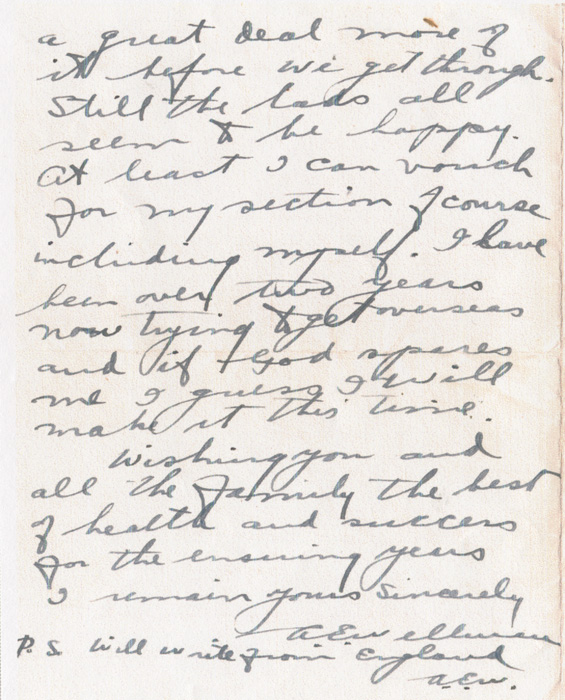 a great deal more of
it before we get through.
Still the lads all
seem to be happy.
At least I can vouch
for my section of course
including myself. I have
been over two years
now trying to get overseas
and if God spares
me I guess I will
make it this time.
Wishing you and
all the family the best
of health and success
for the ensuing years
I remain yours Sincerely
A E Wellman
P. S. Will write from England
A.E.W.